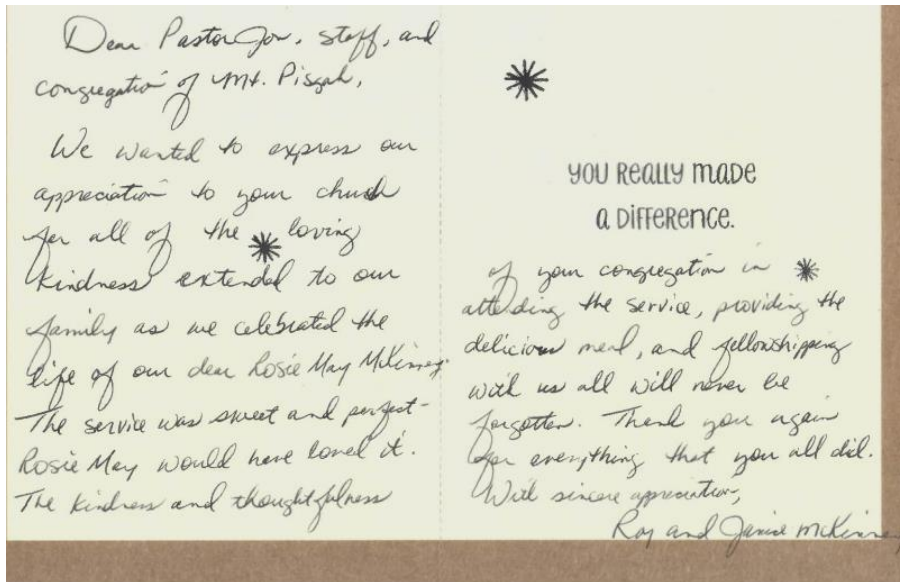 Dear Pastor Jon, staff, and
congregation of Mt. Pisgah,
We wanted to express our
appreciation to your church
for all of the loving
kindness extended to our
family as we celebrated the
life of our dear Rosie May McKinney.
The service was sweet and perfect-
Rosie May would have loved it.
The kindness and thoughtfulness
YOU REALLY MADE
A DIFFERENCE.
of your congregation in
attending the service, providing the
delicious meal, and fellowshipping
with us all will never be
forgotten. Thank you again
for everything that you all did.
With sincere appreciation,
Roy and Janice McKinney